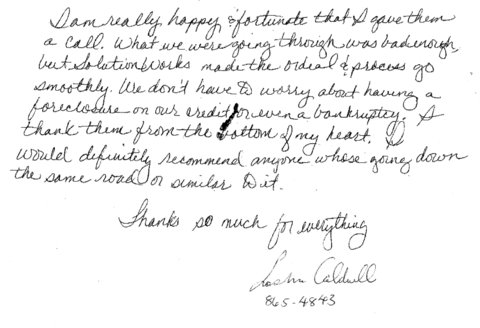 I am really happy & fortunate that I gave them
a call. What we were going through was bad enough,
but SolutionWorks made the ordeal & process go
smoothly. We don't have to worry about having a
foreclosure on our credit or even a bankruptcy. I
thank them from the bottom of my heart. I
would definitely recommend anyone whose going down
the same road or similar to it.
Thanks so much for everything
Caldwell
865-4843